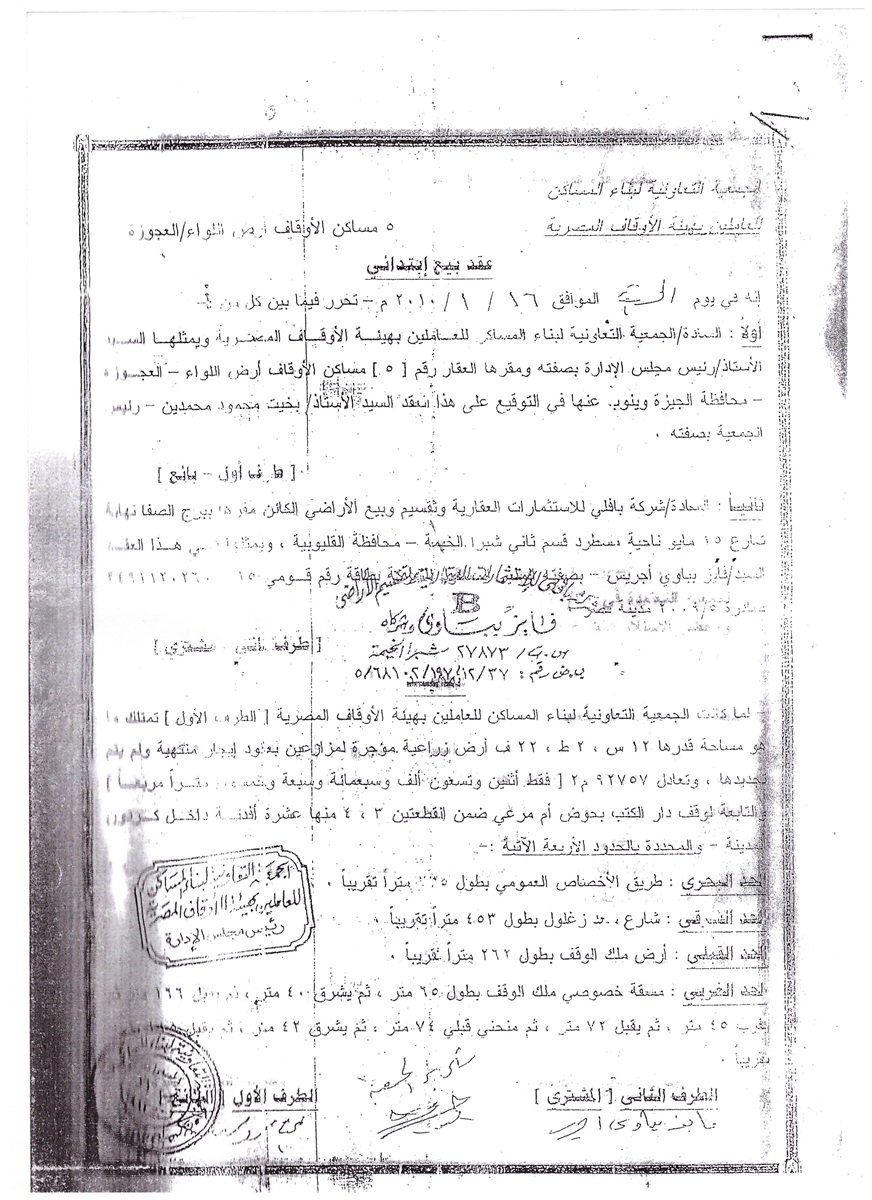 الجمعية التعاونية لبناء المساكن
للعاملين بهيئة الأوقاف المصرية
٥ مساكن الأوقاف أرض اللواء/العجوزة
عقد بيع إبتدائي
إنه في يوم الموافق ١٦ / ١ / ٢٠١٠ م – تحرر فيما بين كل من :–
أولاً : السادة/الجمعية التعاونية لبناء المساكن للعاملين بهيئة الأوقاف المصرية ويمثلها السيد
الأستاذ/رئيس مجلس الإدارة بصفته ومقرها العقار رقم [ ٥ ] مساكن الأوقاف أرض اللواء – العجوزة
– محافظة الجيزة وينوب عنها في التوقيع على هذا العقد السيد الأستاذ/ بخيت محمود محمدين – رئيس
الجمعية بصفته .
[ طرف أول – بائع ]
ثانياً : السادة/شركة بافلي للاستثمارات العقارية وتقسيم وبيع الأراضي الكائن مقرها ببرج الصفا نهاية
شارع ١٥ مايو ناحية مسطرد قسم ثاني شبرا الخيمة – محافظة القليوبية ، ويمثلها في هذا العقد
السيد/فايز بباوي أجريس – بصفته بطاقة رقم قومي
صادرة ٢٠٠٩/٥ مدينة نصر
فايز بباوى وشركاه
س.ت/ ٢٧٨٧٣ شبرا الخيمة
ب.ض رقم : ٥/٦٨١٠٢/١٩٧/١٢/٣٧
[ طرف ثاني – مشتري ]
لما كانت الجمعية التعاونية لبناء المساكن للعاملين بهيئة الأوقاف المصرية [ الطرف الأول ] تمتلك ما
هو مساحة قدرها ١٢ س ، ٢ ط ، ٢٢ ف أرض زراعية مؤجرة لمزارعين بعقود إيجار منتهية ولم يتم
تجديدها ، وتعادل ٩٢٧٥٧ م٢ [ فقط أثنين وتسعون ألف وسبعمائة وسبعة وخمسون متراً مربعاً ]
والتابعة لوقف دار الكتب بحوض أم مرعي ضمن القطعتين ٣ ، ٤ منها عشرة أفدنة داخل كردون
المدينة – والمحددة بالحدود الأربعة الآتية :–
الحد البحري : طريق الأخصاص العمومي بطول متراً تقريباً .
الحد الشرقي : شارع زغلول بطول ٤٥٣ متراً تقريباً .
الحد القبلي : أرض ملك الوقف بطول ٢٦٢ متراً تقريباً .
الحد الغربي : مسقة خصوصي ملك الوقف بطول ٦٥ متر ، ثم يشرق ٤٠ متر ، ثم يقبل ١٦٦
يغرب ٤٥ متر ، ثم يقبل ٧٢ متر ، ثم منحني قبلي ٧٤ متر ، ثم يشرق ٤٢ متر ، ثم يقبل
تقريباً .
الجمعية التعاونية لبناء المساكن
للعاملين بهيئة الأوقاف المصرية
رئيس مجلس الإدارة
الطرف الأول [ البائع ]
الطرف الثاني [ المشترى ]
فايز بباوى